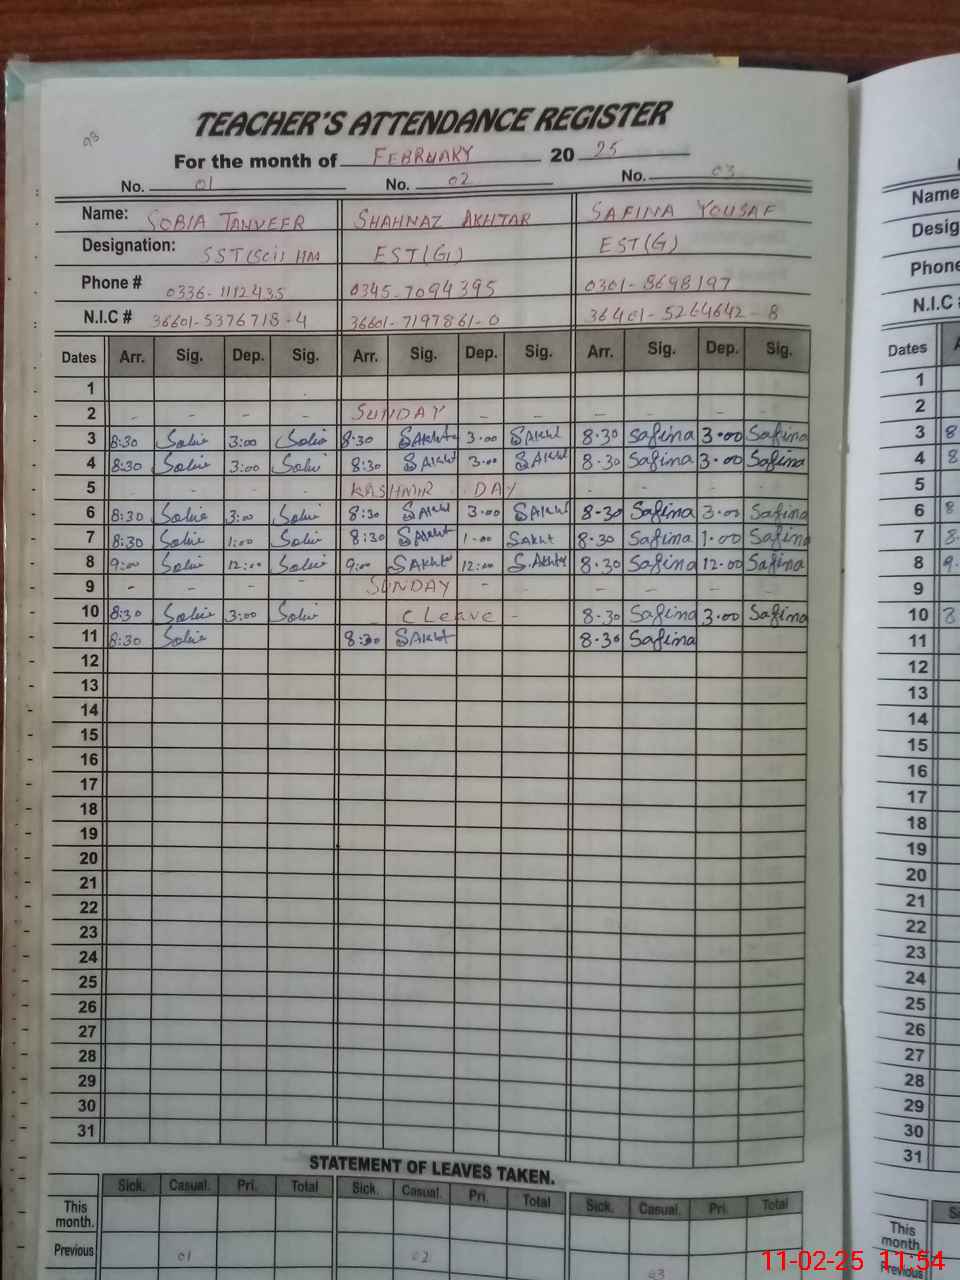 93
TEACHER'S ATTENDANCE REGISTER
For the month of FEBRUARY 20 25
No. 01 No. 02 No. 03
Name: SOBIA TANVEER SHAHNAZ AKHTAR SAFINA YOUSAF
Designation: SST(Sci) HM EST(G) EST(G)
Phone # 0336-1112435 0345-7094395 0301-8698197
N.I.C # 36601-5376718-4 36601-7197861-0 36401-5264642-8
Dates Arr. Sig. Dep. Sig. Arr. Sig. Dep. Sig. Arr. Sig. Dep. Sig.
1
2 - - - - SUNDAY - - - - - -
3 8:30 Sobie 3:00 Sobie 8:30 SAkht 3.00 SAkht 8.30 Safina 3.00 Safina
4 8:30 Sobie 3:00 Sobie 8:30 SAkht 3.00 SAkht 8.30 Safina 3.00 Safina
5 - - - - KASHMIR DAY - - - -
6 8:30 Sobie 3:00 Sobie 8:30 SAkht 3.00 SAkht 8-30 Safina 3.00 Safina
7 8:30 Sobie 1:00 Sobie 8:30 SAkht 1.00 SAkht 8.30 Safina 1.00 Safina
8 9:00 Sobie 12:00 Sobie 9:00 SAkht 12:00 S.Akhtr 8.30 Safina 12.00 Safina
9 - - - - SUNDAY - - - - -
10 8:30 Sobie 3:00 Sobie C Leave - 8.30 Safina 3.00 Safina
11 8:30 Sobie 8:30 SAkht 8.30 Safina
12
13
14
15
16
17
18
19
20
21
22
23
24
25
26
27
28
29
30
31
STATEMENT OF LEAVES TAKEN.
Sick. Casual. Pri. Total Sick. Casual. Pri. Total Sick. Casual. Pri. Total
This month.
Previous 01 02 03
Name
Desig
Phone
N.I.C
Dates
1
2
3 8
4 8
5
6 8
7 8.
8 9.
9
10 8
11
12
13
14
15
16
17
18
19
20
21
22
23
24
25
26
27
28
29
30
31
This month
Previous
11-02-25 11:54